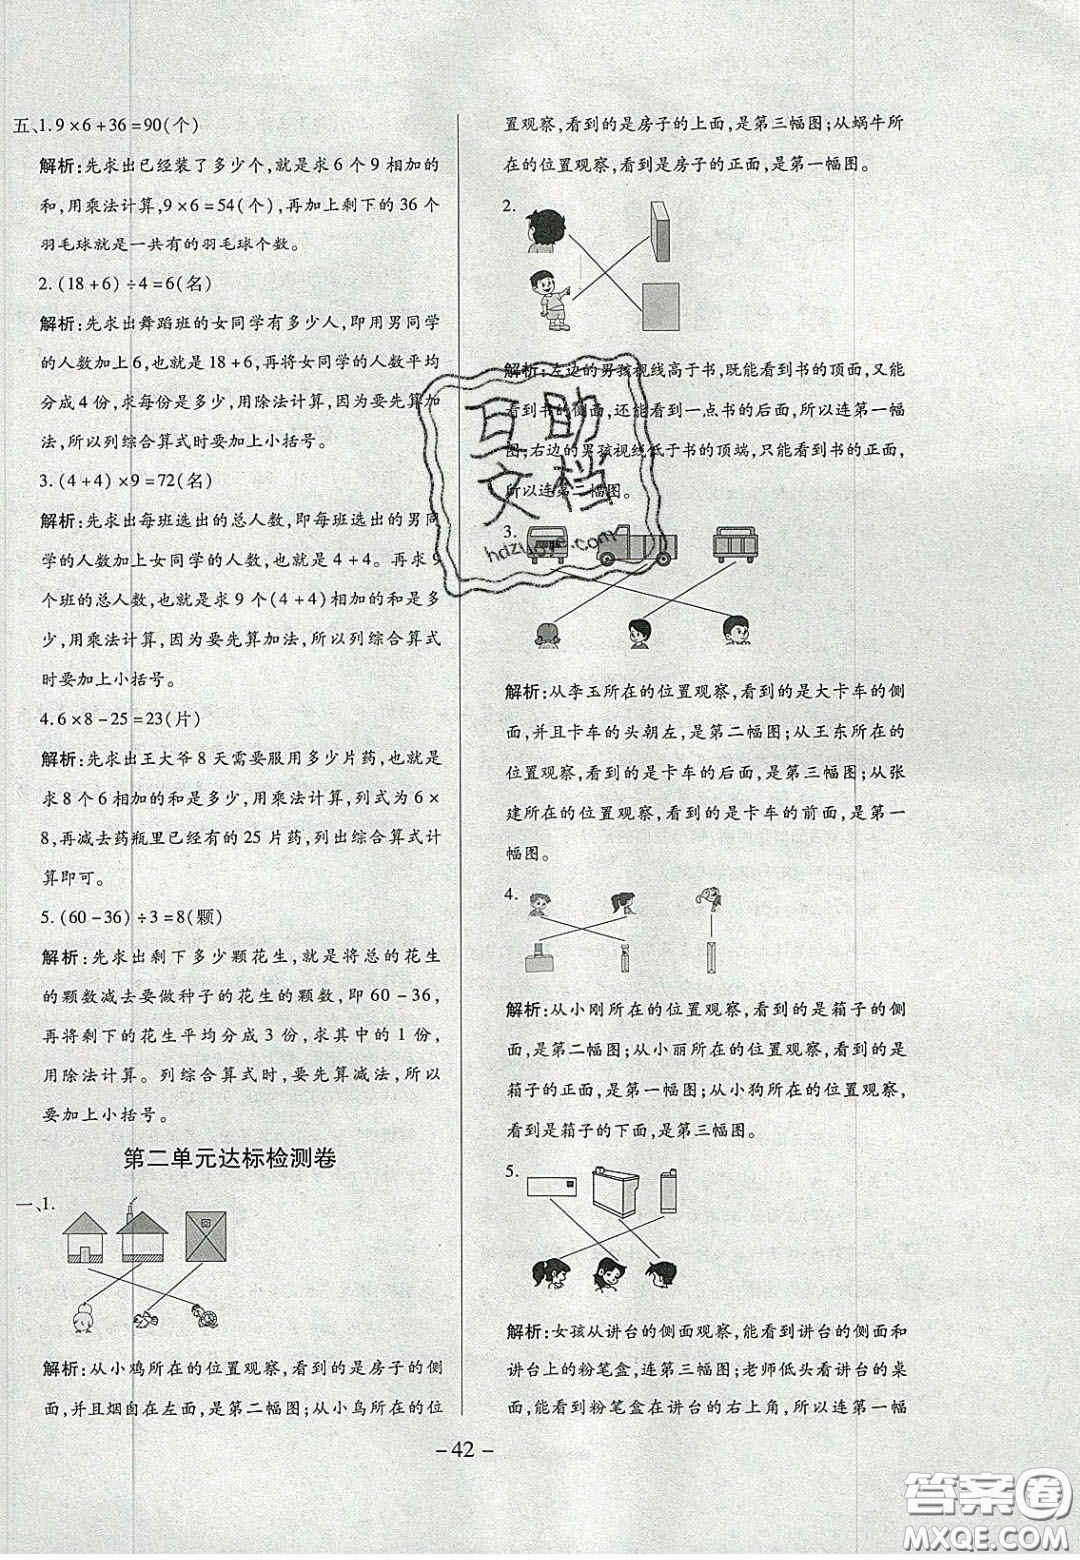 五、1.9×6+36=90(个)
解析:先求出已经装了多少个,就是求 6 个 9 相加的
和,用乘法计算,9×6=54(个),再加上剩下的 36 个
羽毛球就是一共有的羽毛球个数。
2.(18+6)÷4=6(名)
解析:先求出舞蹈班的女同学有多少人,即用男同学
的人数加上6,也就是18+6,再将女同学的人数平均
分成4份,求每份是多少,用除法计算,因为要先算加
法,所以列综合算式时要加上小括号。
3.(4+4)×9=72(名)
解析:先求出每班选出的总人数,即每班选出的男同
学的人数加上女同学的人数,也就是4+4。再求 9
个班的总人数,就是求9个(4+4)相加的和是多
少,用乘法计算,因为要先算加法,所以列综合算式
时要加上小括号。
4.6×8-25=23(片)
解析:先求出王大爷8天需要服用多少片药,也就是
求8个6相加的和是多少,用乘法计算,列式为6×
8,再减去药瓶里已经有的 25 片药,列出综合算式计
算即可。
5.(60-36)÷3=8(颗)
解析:先求出剩下多少颗花生,就是将总的花生
的颗数减去要做种子的花生的颗数,即60-36,
再将剩下的花生平均分成3份,求其中的1份,
用除法计算。列综合算式时,要先算减法,所以
要加上小括号。
第二单元达标检测卷
一、1.
解析:从小鸡所在的位置观察,看到的是房子的侧
面,并且烟囱在左面,是第二幅图;从小鸟所在的位
置观察,看到的是房子的上面,是第三幅图;从蜗牛所
在的位置观察,看到的是房子的正面,是第一幅图。
2.
解析:左边的男孩视线高于书,既能看到书的顶面,又能
看到书的侧面,还能看到一点书的后面,所以连第一幅
图;右边的男孩视线低于书的顶端,只能看到书的正面,
所以连第二幅图。
3.
解析:从李玉所在的位置观察,看到的是大卡车的侧
面,并且卡车的头朝左,是第二幅图;从王东所在的
位置观察,看到的是卡车的后面,是第三幅图;从张
建所在的位置观察,看到的是卡车的前面,是第一
幅图。
4.
解析:从小刚所在的位置观察,看到的是箱子的侧
面,是第二幅图;从小丽所在的位置观察,看到的是
箱子的正面,是第一幅图;从小狗所在的位置观察,
看到的是箱子的下面,是第三幅图。
5.
解析:女孩从讲台的侧面观察,能看到讲台的侧面和
讲台上的粉笔盒,连第三幅图;老师低头看讲台的桌
面,能看到粉笔盒在讲台的右上角,所以连第一幅
-42-
互助
文档
hdzuoye.com
答案圈
MXQE.COM